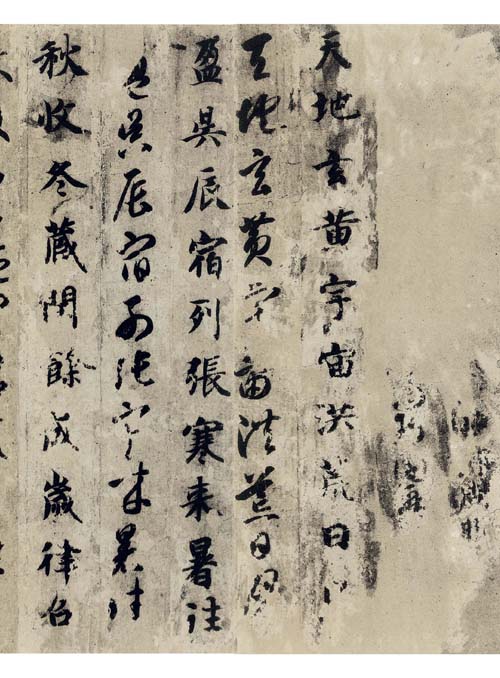 天地玄黄宇宙洪荒日月
天地玄黄宇宙洪荒日月
盈昃辰宿列張寒来暑往
盈昃辰宿列張寒来暑往
秋收冬藏閏餘成歲律吕